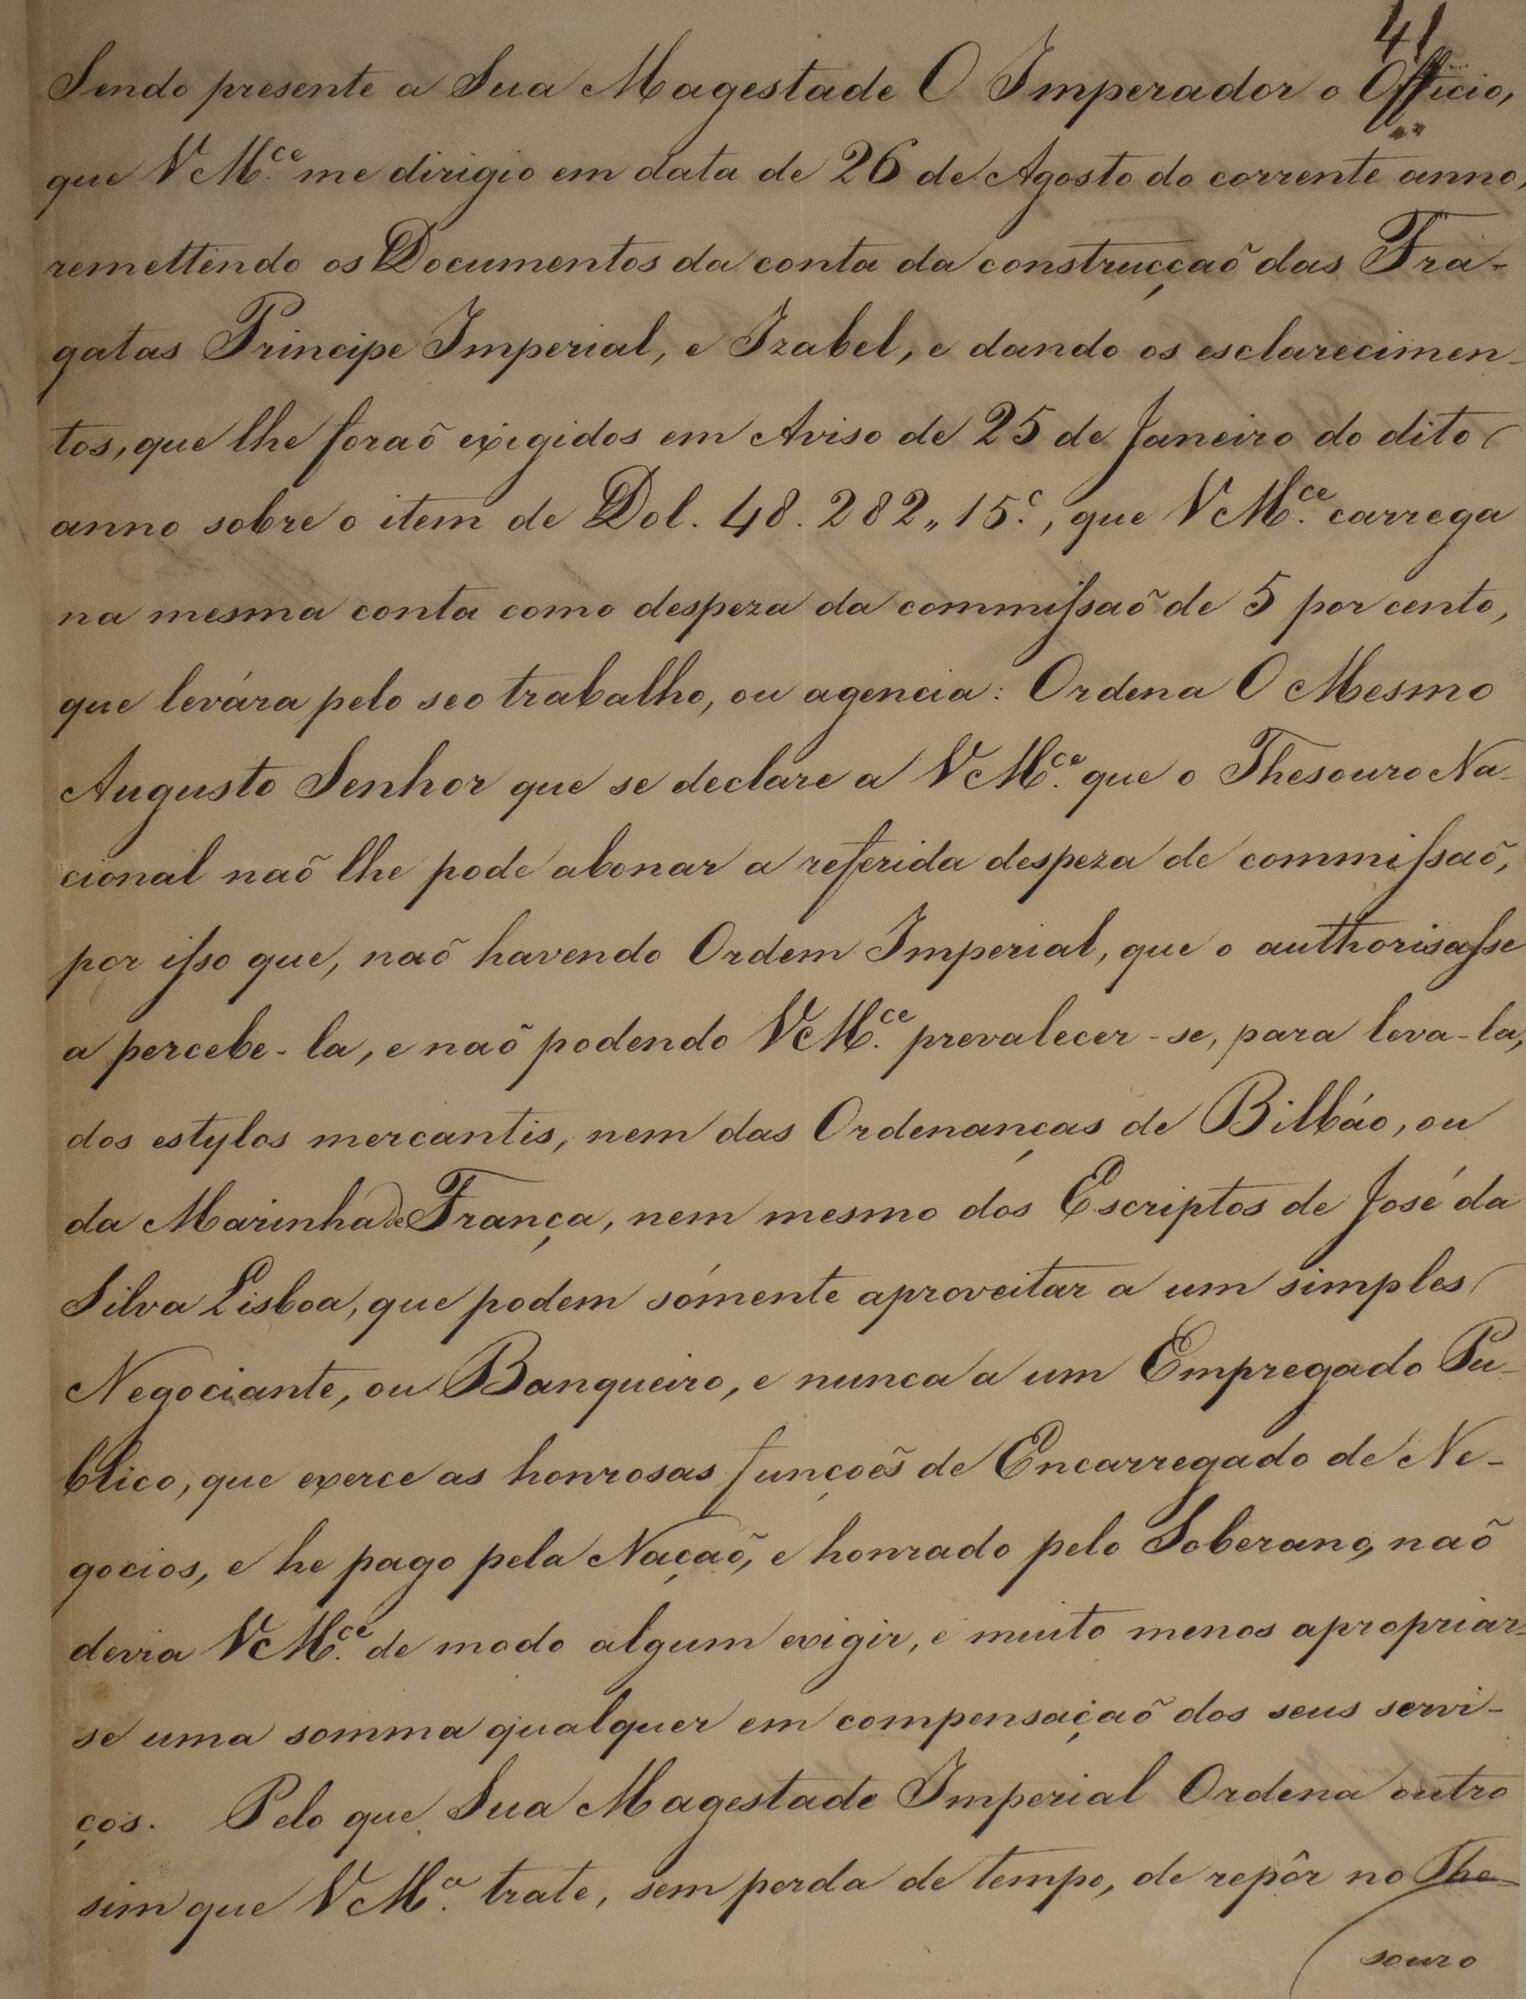 41
Sendo presente a Sua Magestade O Imperador o Officio,
que VM.ce me dirigio em data de 26 de Agosto do corrente anno,
remettendo os Documentos da conta da construcçaõ das Fra-
gatas Principe Imperial, e Izabel, e dando os esclarecimen-
tos, que lhe foraõ exigidos em Aviso de 25 de Janeiro do dito
anno sobre o item de Dol. 48.282,, 15.c, que VM.ce carrega
na mesma conta como despeza da commissaõ de 5 por cento,
que levára pelo seo trabalho, ou agencia: Ordena O Mesmo
Augusto Senhor que se declare a VM.ce que o Thesouro Na-
cional naõ lhe pode abonar a referida despeza de commissaõ,
por isso que, naõ havendo Ordem Imperial, que o authorisasse
a percebe-la, e naõ podendo VM.ce prevalecer-se, para leva-la,
dos estylos mercantis, nem das Ordenanças de Bilbáo, ou
da Marinha de França, nem mesmo dos Escriptos de José da
Silva Lisboa, que podem sómente aproveitar a um simples
Negociante, ou Banqueiro, e nunca a um Empregado Pu-
blico, que exerce as honrosas funçoẽs de Encarregado de Ne-
gocios, e he pago pela Naçaõ, e honrado pelo Soberano, naõ
devia VM.ce de modo algum exigir, e muito menos apropriar-
se uma somma qualquer em compensaçaõ dos seus servi-
ços. Pelo que Sua Magestade Imperial Ordena outro
sim que VM.ce trate, sem perda de tempo, de repôr no The-
souro